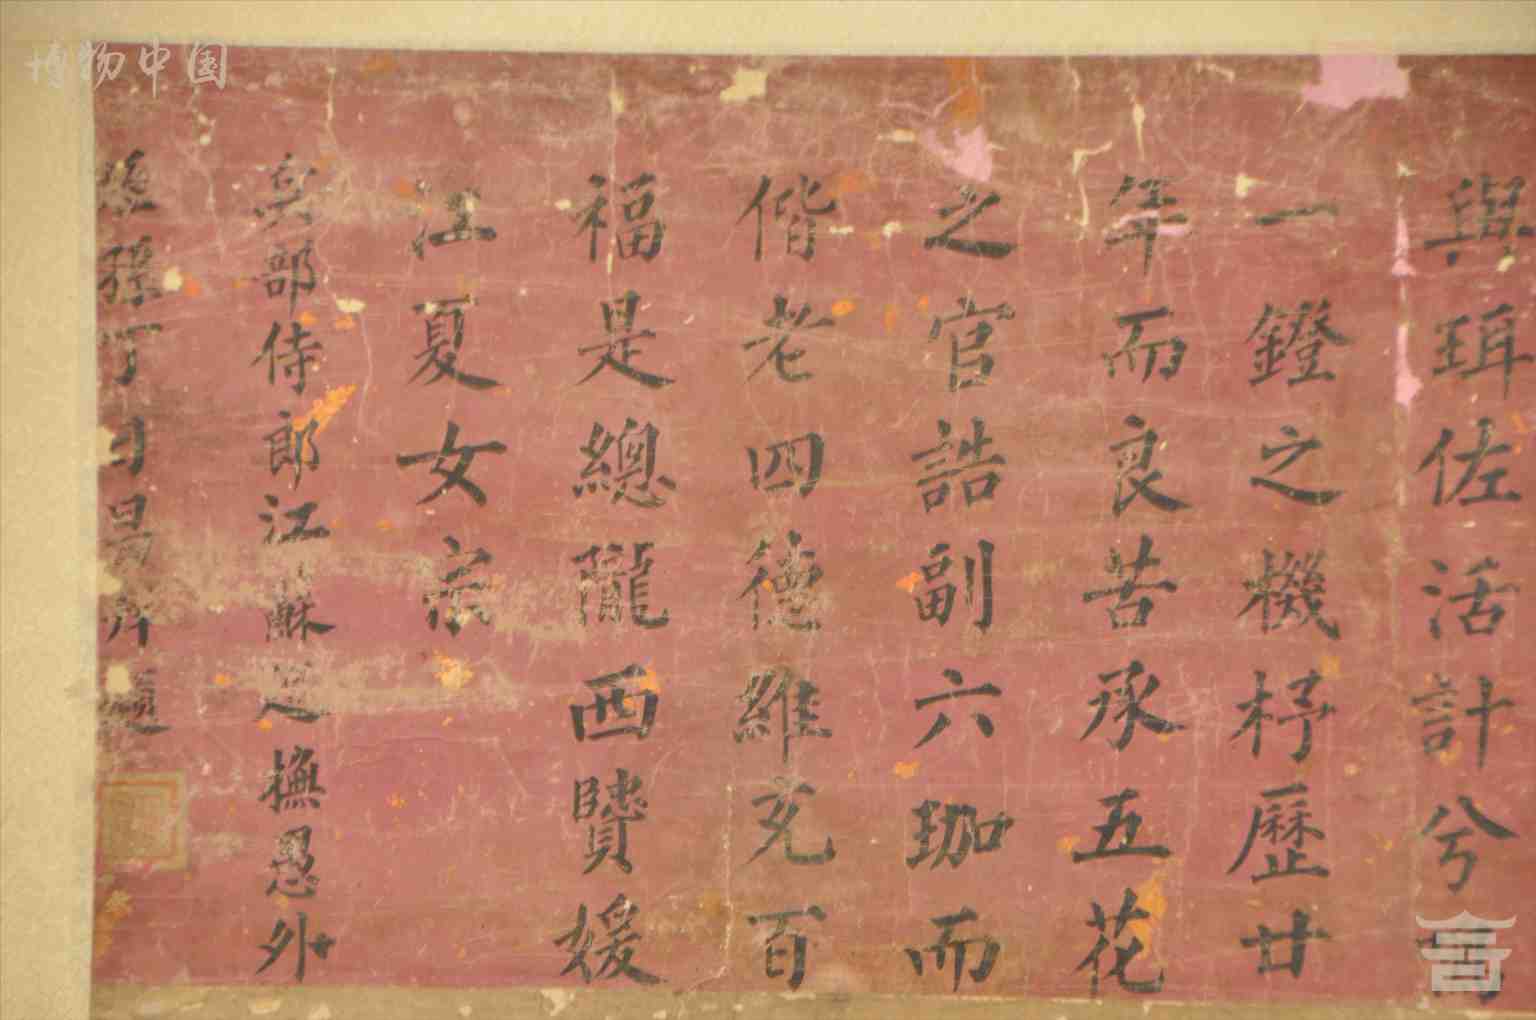 與珥佐活計兮
一鐙之機杼歷廿
年而良苦承五花
之官誥副六珈而
偕老四德維充百
福是總隴西賢媛
江夏女宗
兵部侍郎江蘇巡撫愚外
孫丁日昌拜題
博物中国